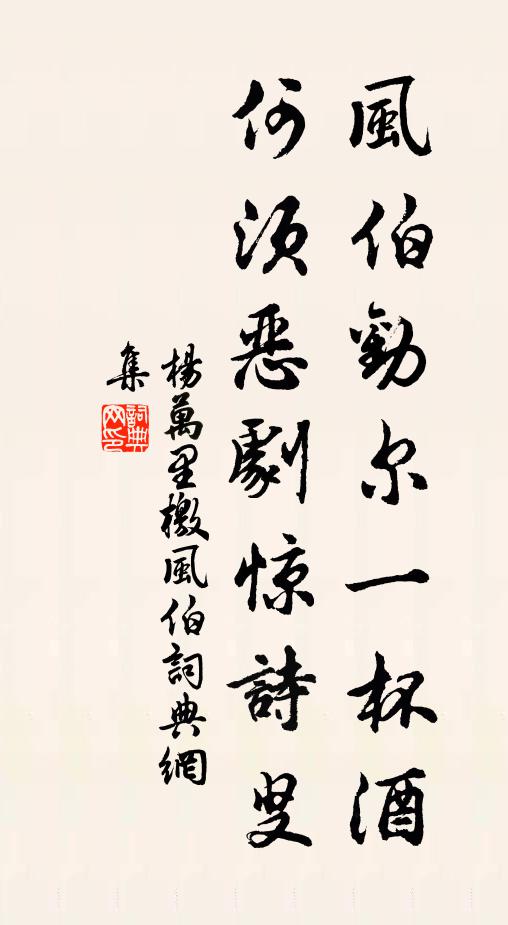 風伯勸尔一杯酒
何須惡劇惊詩叟
楊萬里檄風伯詞典網
集
詞典
网印